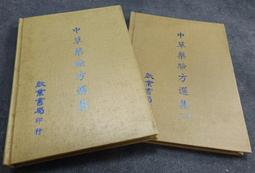 中草藥驗方選集
啟業書局印行
中草藥驗方選集
啟業書局